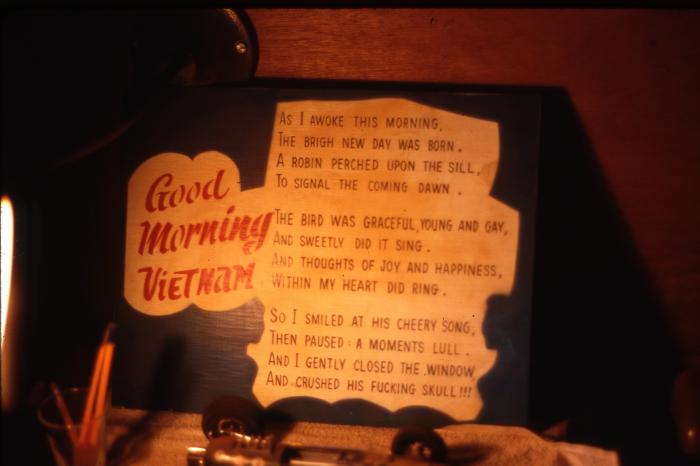 Good
Morning
VIETNAM
AS I AWOKE THIS MORNING,
THE BRIGH NEW DAY WAS BORN.
A ROBIN PERCHED UPON THE SILL,
TO SIGNAL THE COMING DAWN.
THE BIRD WAS GRACEFUL, YOUNG AND GAY,
AND SWEETLY DID IT SING.
AND THOUGHTS OF JOY AND HAPPINESS,
WITHIN MY HEART DID RING.
SO I SMILED AT HIS CHEERY SONG,
THEN PAUSED: A MOMENTS LULL.
AND I GENTLY CLOSED THE WINDOW,
AND CRUSHED HIS FUCKING SKULL!!!